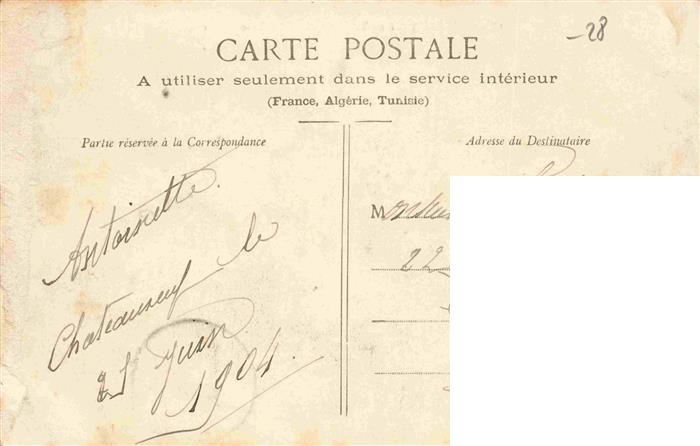 -28
CARTE POSTALE
A utiliser seulement dans le service intérieur
(France, Algérie, Tunisie)
Partie réservée à la Correspondance
Adresse du Destinataire
Antoinette.
Chateauneuf le
Juin
1904.
M
22